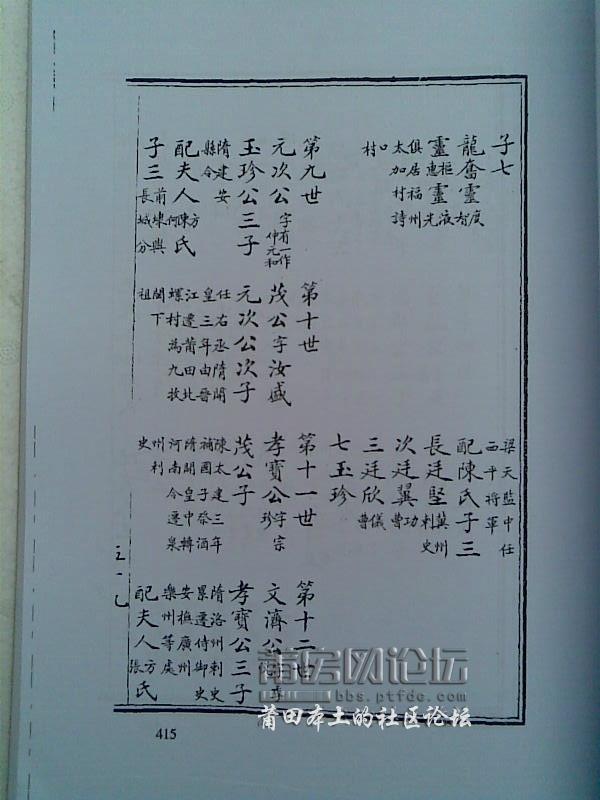 子七
龍奮靈度智
靈樞惠靈液光
俱居福州
太加村詩
口村
第九世
元次公字有一作仲元和
玉珍公三子
隋建安
縣令
配夫人方陳何氏
子三長前城埭分興
第十世
茂公字汝盛
元次公次子
任右丞隋開
皇三年由晉
江遷莆田北
螺村為九牧
閩下
祖
梁天監中任
西平將軍
配陳氏子三
長廷堅冀州刺史
次廷翼功曹
三廷欣儀曹
七玉珍
第十一世
孝寶公字宗珍
茂公子
陳太建三年
補國子祭酒
隋開皇中轉
河南令遷泉
州利
史
第十二世
文濟公
孝寶公三子
隋洛州刺史
累遷侍御史
安撫廣州
樂州等處
配夫人方張氏
415
莆房网论坛
bbs.ptfdc.com
莆田本土的社区论坛